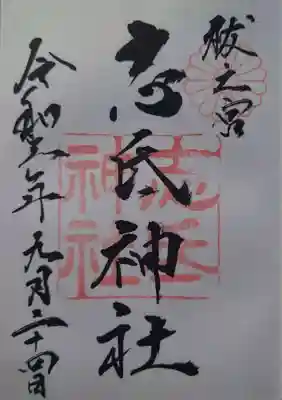 祓之宮
志氐神社
令和二年九月二十四日
志氐神社